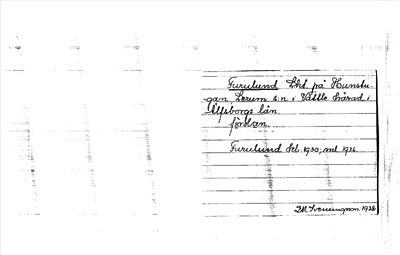 Furulund Lht. på Hunstu-
gan, Lerum s:n i Vättle härad i
Älfsborgs län.
förelsen.
Furulund Jeb. 1930, ml 1926
M. Svenungson. 1936